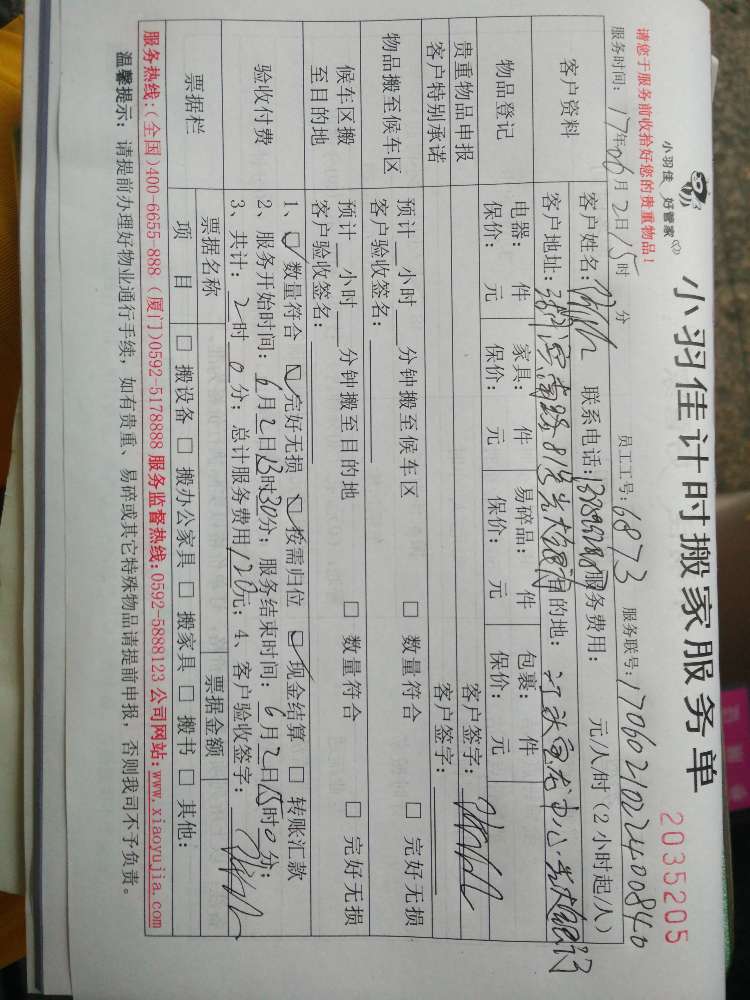 小羽佳计时搬家服务单
2035205
小羽佳 好管家
请您于服务前收拾好您的贵重物品！
服务时间：17年06月2日15时 分 员工工号：6873 服务联号：
客户资料
客户姓名： 联系电话： 服务费用： 元/人/时（2小时起/人）
客户地址： 目的地：
物品登记
电器： 件 家具： 件 易碎品： 件 包裹： 件
保价： 元 保价： 元 保价： 元 保价： 元
贵重物品申报 客户签字：
客户特别承诺 客户签字：
物品搬至候车区
预计__小时__分钟搬至候车区 □ 数量符合 □ 完好无损
客户验收签名：
候车区搬至目的地
预计__小时__分钟搬至目的地 □ 数量符合 □ 完好无损
客户验收签名：
验收付费
1、☑ 数量符合 ☑ 完好无损 ☑ 按需归位 ☑ 现金结算 □ 转账汇款
2、服务开始时间：6月2日13时30分；服务结束时间：6月2日15时0分；
3、共计：2时0分；总计服务费用120元；4、客户验收签字：
票据栏
票据名称 票据金额
项目 □ 搬设备 □ 搬办公家具 □ 搬家具 □ 搬书 □ 其他：
服务热线：(全国)400-6655-888 (厦门)0592-5178888 服务监督热线：0592-5888123 公司网站：www.xiaoyujia.com
温馨提示：请提前办理好物业通行手续，如有贵重、易碎或其它特殊物品请提前申报，否则我司不予负责。